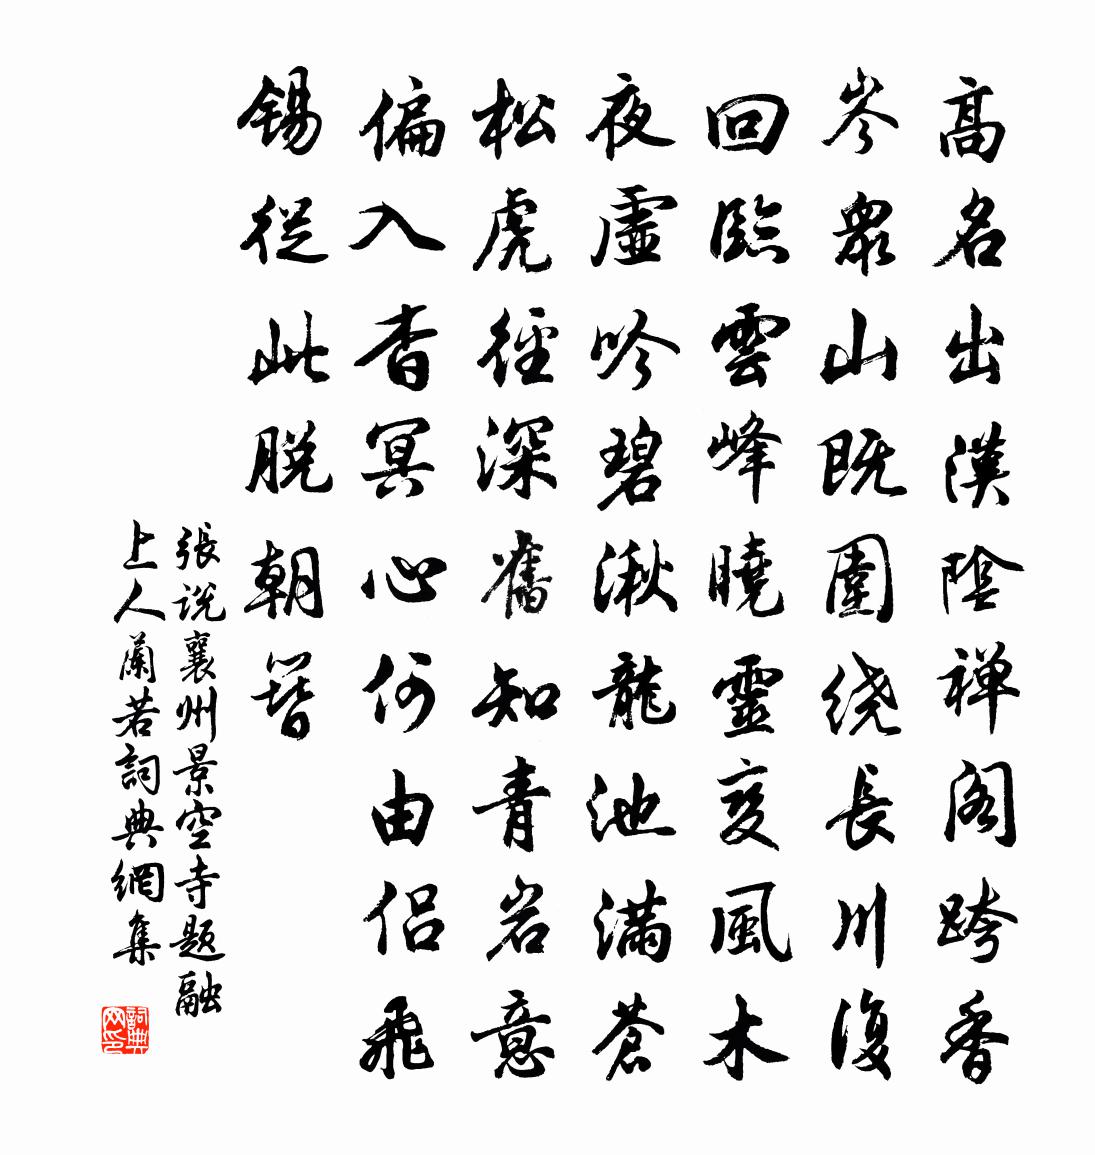 高名出漢陰禅阁跨香
岑眾山既圍绕長川復
回臨雲峰曉靈变風木
夜虛吟碧湫龍池滿蒼
松虎徑深舊知青岩意
偏入杳冥心何由侣飛
锡從此脱朝簪
張说襄州景空寺题融
上人蘭若詞典網集
詞典网印